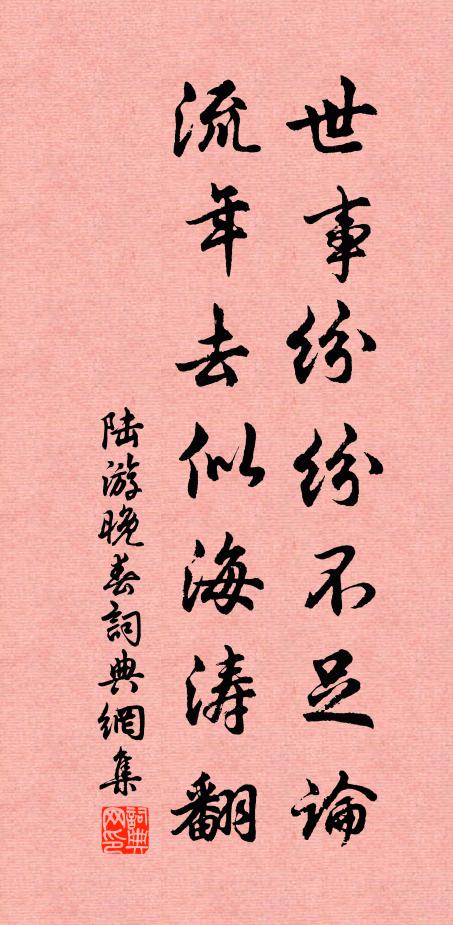 世事紛紛不足論
流年去似海涛翻
陆游晚春詞典網集
詞典网印